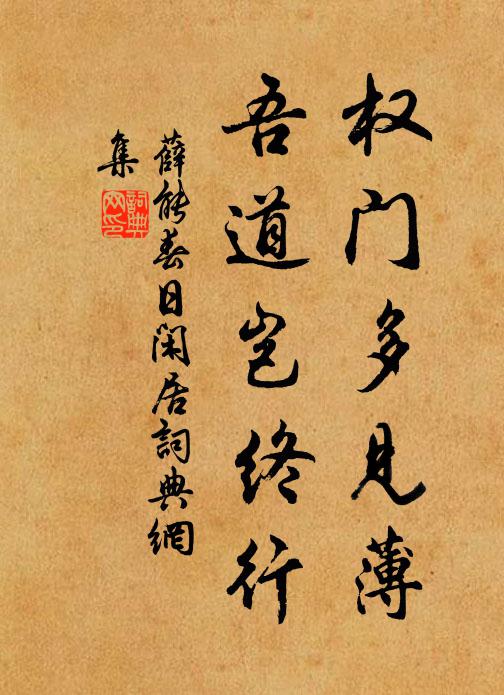 权门多见薄
吾道岂终行
薛能春日闲居詞典網
集
詞典网印